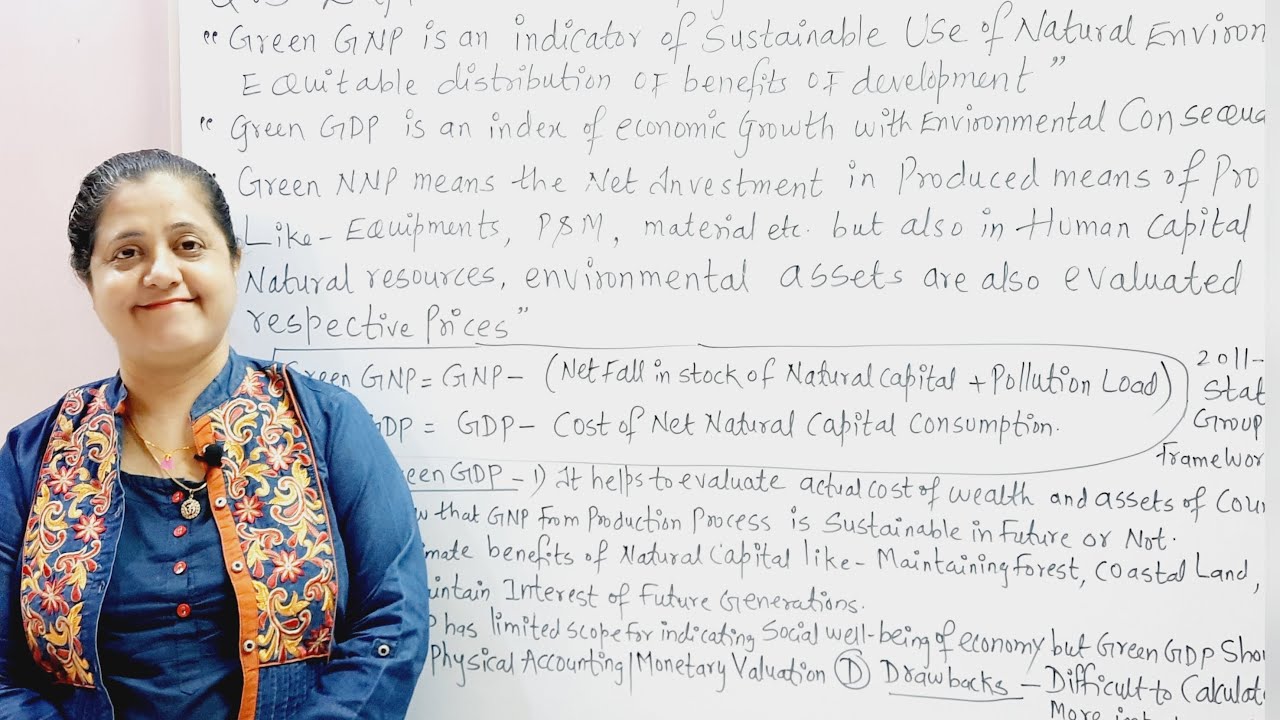 “ Green GNP is an indicator of Sustainable Use of Natural Environ
Equitable distribution of benefits of development ”
“ Green GDP is an index of economic Growth with Environmental Consequa
Green NNP means the Net Investment in Produced means of Pro
Like - Equipments, P&M, material etc. but also in Human Capital
Natural resources, environmental assets are also evaluated
respective Prices ”
Green GNP = GNP - (Net Fall in stock of Natural Capital + Pollution Load)
GDP = GDP - Cost of Net Natural Capital Consumption.
2011-
Stat
Group
Framewor
een GDP - 1) It helps to evaluate actual cost of wealth and assets of Cou
w that GNP from Production Process is Sustainable in Future or Not.
mate benefits of Natural Capital like - Maintaining Forest, Coastal Land,
intain Interest of Future Generations.
P has limited scope for indicating Social well-being of economy but Green GDP Sho
Physical Accounting/Monetary Valuation (D) Drawbacks - Difficult to Calculat
More